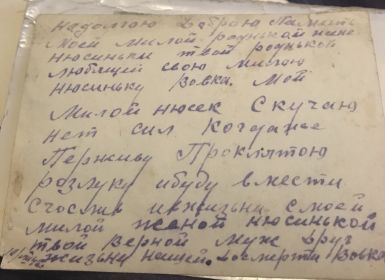 На долгою Добрую Память
моей милой роднькой жине
Нюсиньки твой роднькой
любящей свою милою
Нюсиньку Вовка. Мой
милой Нюсек Скучаю
нет сил когда же
Перживу Проклятою
розлуку ибуду вмести
Счослив ижизни смоей
милой женой Нюсинькой
твой верной муж друг
жизни нашей досмерти Вовка